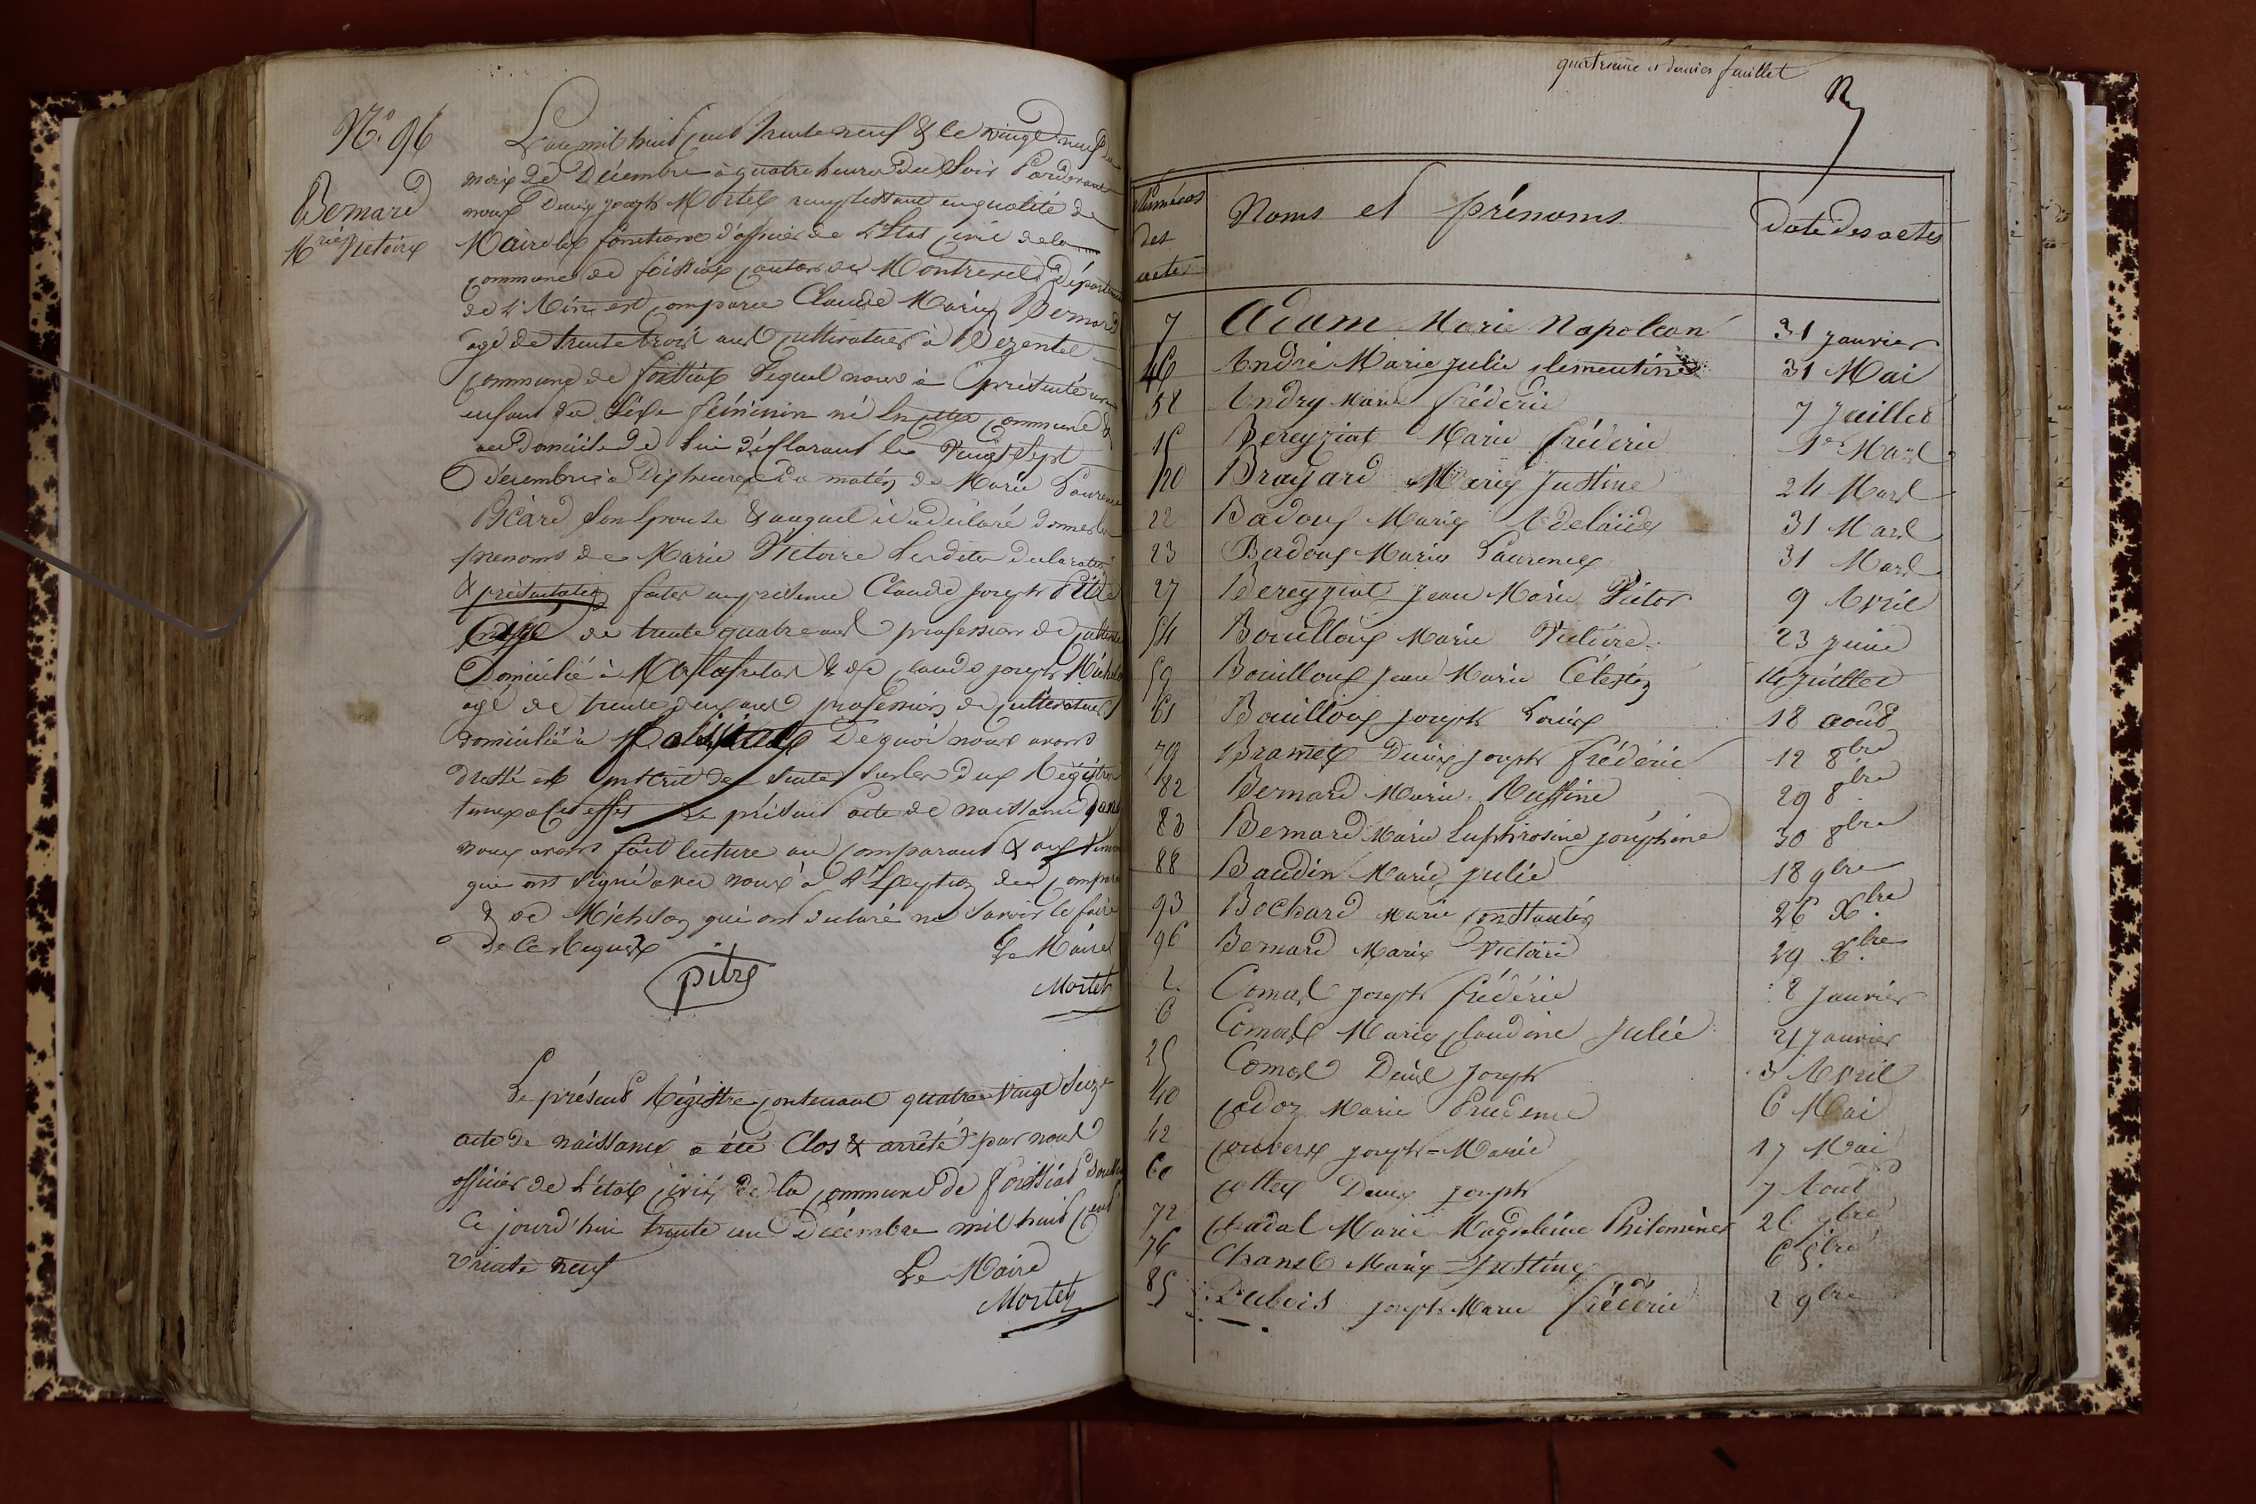 N.º 96
Bernard
M.rie Victoire
L'an mil huit cent trente neuf & le vingt neuf du
mois de Décembre à quatre heures du Soir Pardevant
nous Denis joseph Mortel remplissant en qualité de
Maire les fonctions d'officier de l'Etat civil de la
commune de foissiat canton de Montrevel Département
de l'Ain est comparu Claude Marie Bernard
agé de trente trois ans cultivateur à
commune de foissiat lequel nous à présenté un
enfant du Sexe féminin né en cette commune &
au domicile de lui déclarant le vingt Sept
Décembre à Dix heures du matin de Marie Laurence
Picard Son Epouse & auquel il a déclaré donner les
prenoms de Marie Victoire Lesdites déclaration
& présentation faites en présence Claude joseph Pitre
de trente quatre ans profession de
Domicilié à & de claude joseph Michelon
agé de trente deux ans profession de cultivateur
domicilié à De quoi nous avons
dressé et inscrit de Suite Sur les deux Régistres
tenus a cet effet Le présent acte de naissance dont
nous avons fait lecture au comparant & aux temoins
qui ont signé avec nous à l'Exeption du comparant
& de Michelon qui ont déclaré ne Savoir le faire
de ce Requis
Le Maire
pitre
Mortel
Le présent Régistre contenant quatre vingt Seize
acte de naissance a été Clos & arrêté par nous
officier de l'état civil de la commune de foissiat
Ce jourd'hui trente un Décembre mil huit cent
trente neuf
Le Maire
Mortel
quatrieme et dernier feuillet
Numéros des actes Noms et prénoms date des actes
7 Adam Marie Napoléon 31 janvier
46 André Marie julie clementine 31 Mai
58 Andry Marie frédéric 7 juillet
15 Bereyziat Marie frédéric 1er Mars
20 Brayard Marie Justine 24 Mars
22 Badoux Marie Adelaïde 31 Mars
23 Badoux Marie Laurence 31 Mars
27 Bereyziat Jean Marie Victor 9 Avril
54 Bouilloux Marie Victoire 23 juin
59 Bouilloux Jean Marie Célestin 14 juillet
61 Bouilloux joseph Louis 18 août
79 Bramet Denis joseph frédéric 12 8bre
82 Bernard Marie Ruffine 29 8bre
83 Bernard Marie Euphrosine joséphine 30 8bre
88 Baudin Marie julie 18 9bre
93 Bochard Marie Constantin 26 Xbre
96 Bernard Marie Victoire 29 Xbre
2 Comas joseph frédéric 8 janvier
6 Comas Marie claudine Julie 21 janvier
25 Comas Denis Joseph 3 Avril
40 cadoz Marie Prudence 6 Mai
42 couvert joseph=Marie 17 Mai
60 collet Denis joseph 7 Aout
72 chadal Marie Magdeleine Philomène
76 Chanel Marie Justine
85 Dubois joseph Marie frédéric 2 9bre